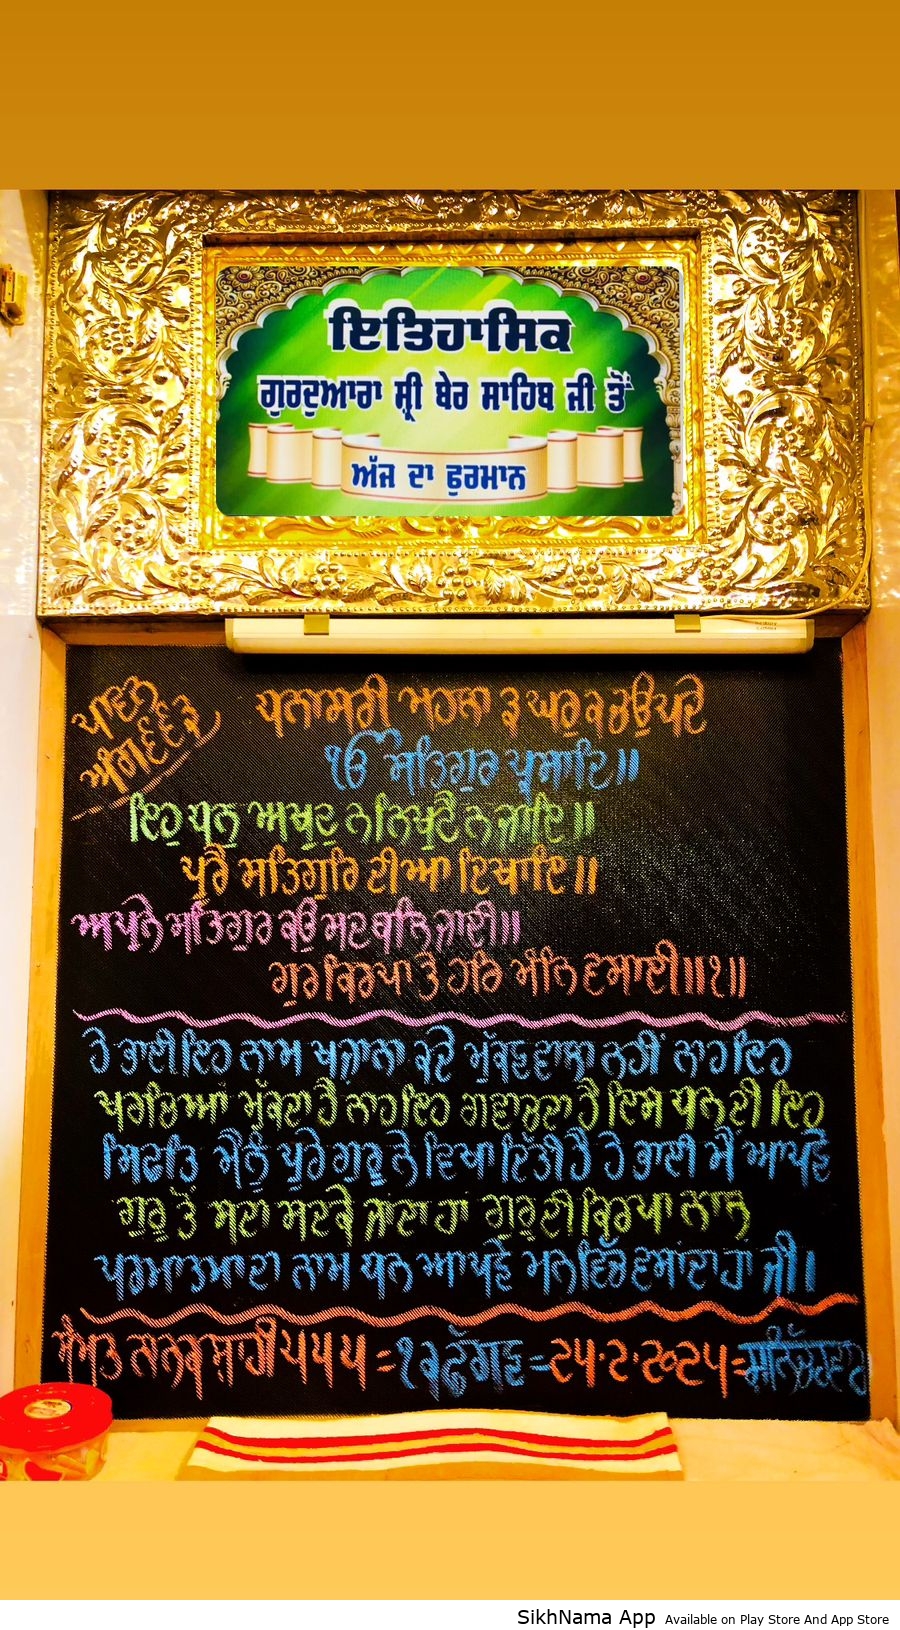 ਇਤਿਹਾਸਿਕ
ਗੁਰਦੁਆਰਾ ਸ਼੍ਰੀ ਬੇਰ ਸਾਹਿਬ ਜੀ ਤੋਂ
ਅੱਜ ਦਾ ਫੁਰਮਾਨ
ਪਾਵਨ
ਅੰਗ ੬੬੩
ਧਨਾਸਰੀ ਮਹਲਾ ੩ ਘਰੁ ੨ ਚਉਪਦੇ
ੴ ਸਤਿਗੁਰ ਪ੍ਰਸਾਦਿ॥
ਇਹੁ ਧਨੁ ਅਖੁਟੁ ਨ ਨਿਖੁਟੈ ਨ ਜਾਇ॥
ਪੂਰੈ ਸਤਿਗੁਰਿ ਦੀਆ ਦਿਖਾਇ॥
ਅਪੁਨੇ ਸਤਿਗੁਰ ਕਉ ਸਦ ਬਲਿ ਜਾਈ॥
ਗੁਰ ਕਿਰਪਾ ਤੇ ਹਰਿ ਮੰਨਿ ਵਸਾਈ॥੧॥
ਹੇ ਭਾਈ ਇਹ ਨਾਮ ਖਜ਼ਾਨਾ ਕਦੇ ਮੁੱਕਣ ਵਾਲਾ ਨਹੀਂ ਨਾਹ ਇਹ
ਖਰਚਿਆਂ ਮੁੱਕਦਾ ਹੈ ਨਾਹ ਇਹ ਗਵਾਚਦਾ ਹੈ ਇਸ ਧਨ ਦੀ ਇਹ
ਸਿਫਤਿ ਮੈਨੂੰ ਪੂਰੇ ਗੁਰੂ ਨੇ ਵਿਖਾ ਦਿੱਤੀ ਹੈ ਹੇ ਭਾਈ ਮੈਂ ਆਪਣੇ
ਗੁਰੂ ਤੋਂ ਸਦਾ ਸਦਕੇ ਜਾਂਦਾ ਹਾਂ ਗੁਰੂ ਦੀ ਕਿਰਪਾ ਨਾਲ
ਪਰਮਾਤਮਾ ਦਾ ਨਾਮ ਧਨ ਆਪਣੇ ਮਨ ਵਿੱਚ ਵਸਾਂਦਾ ਹਾਂ ਜੀ।
ਸੰਮਤ ਨਾਨਕਸ਼ਾਹੀ ੫੫੫ = ੧੩ ਫੱਗਣ = ੨੫.੨.੨੦੨੫ =
SikhNama App Available on Play Store And App Store